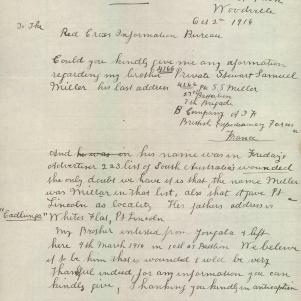 Woodville
Oct 2nd 1916
To The
Red Cross Information Bureau
Could you kindly give me any information
regarding my brother Private Stewart Samuel
4266
Miller his last address 4266 Pte S. S Miller
27th Battalion
7th Brigade
B Company A I F
British Expeditionary Forces
France
And he was on his name was in Friday's
Advertiser 223 list of South Australia's wounded
the only doubt we have of is that the name Miller
was Millar in that list, also that it gave Pt
Lincoln as locality. Her fathers address is
"Cadlunga" Whites Flat, Pt Lincoln
My Brother enlisted from Yongala & left
here 9th March 1916 in
We believe
it to be him that is wounded & will be very
Thankful indeed for any information you can
kindly give, Thanking you kindly in anticipation